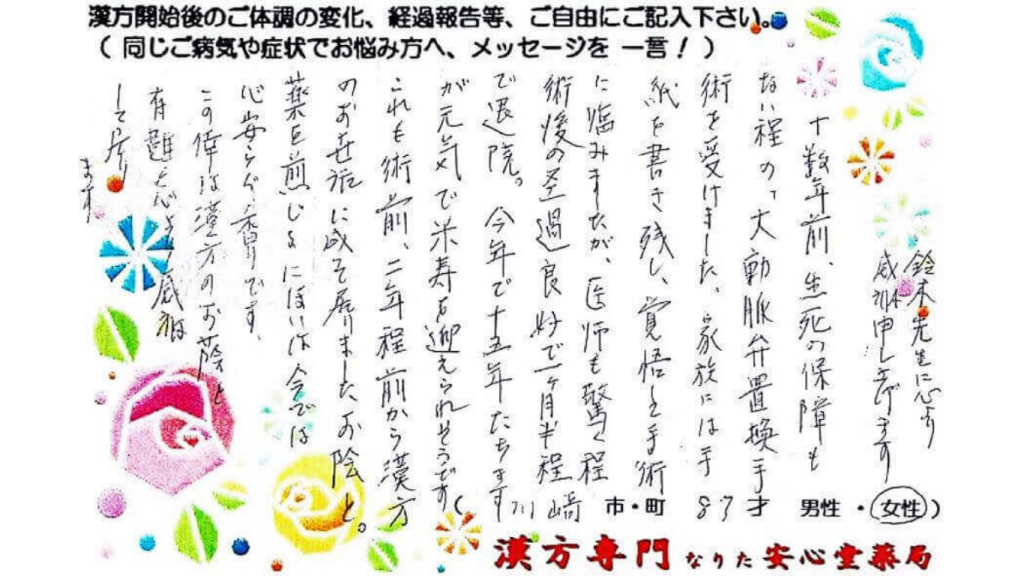 漢方開始後のご体調の変化、経過報告等、ご自由にご記入下さい。
( 同じご病気や症状でお悩み方へ、メッセージを 一言！)
鈴木先生に心より
感謝申し上げます
十数年前、生死の保障も
ない程の「大動脈弁置換手
術を受けました。家族には手
紙を書き残し、覚悟して手術
に臨みましたが、医師も驚く程
術後の経過良好で一ヶ月半程
で退院。今年で十五年たちます
が元気で米寿を迎えられそうです
これも術前、二年程前から漢方
のお世話に成って居りましたお陰と。
薬を煎じるにほいは今では
心安らぐ香りです。
この倖は漢方のお蔭と
有難く心より感謝
して居り
ます
(川崎 市・町 87才 男性・女性)
漢方専門 なりた安心堂薬局